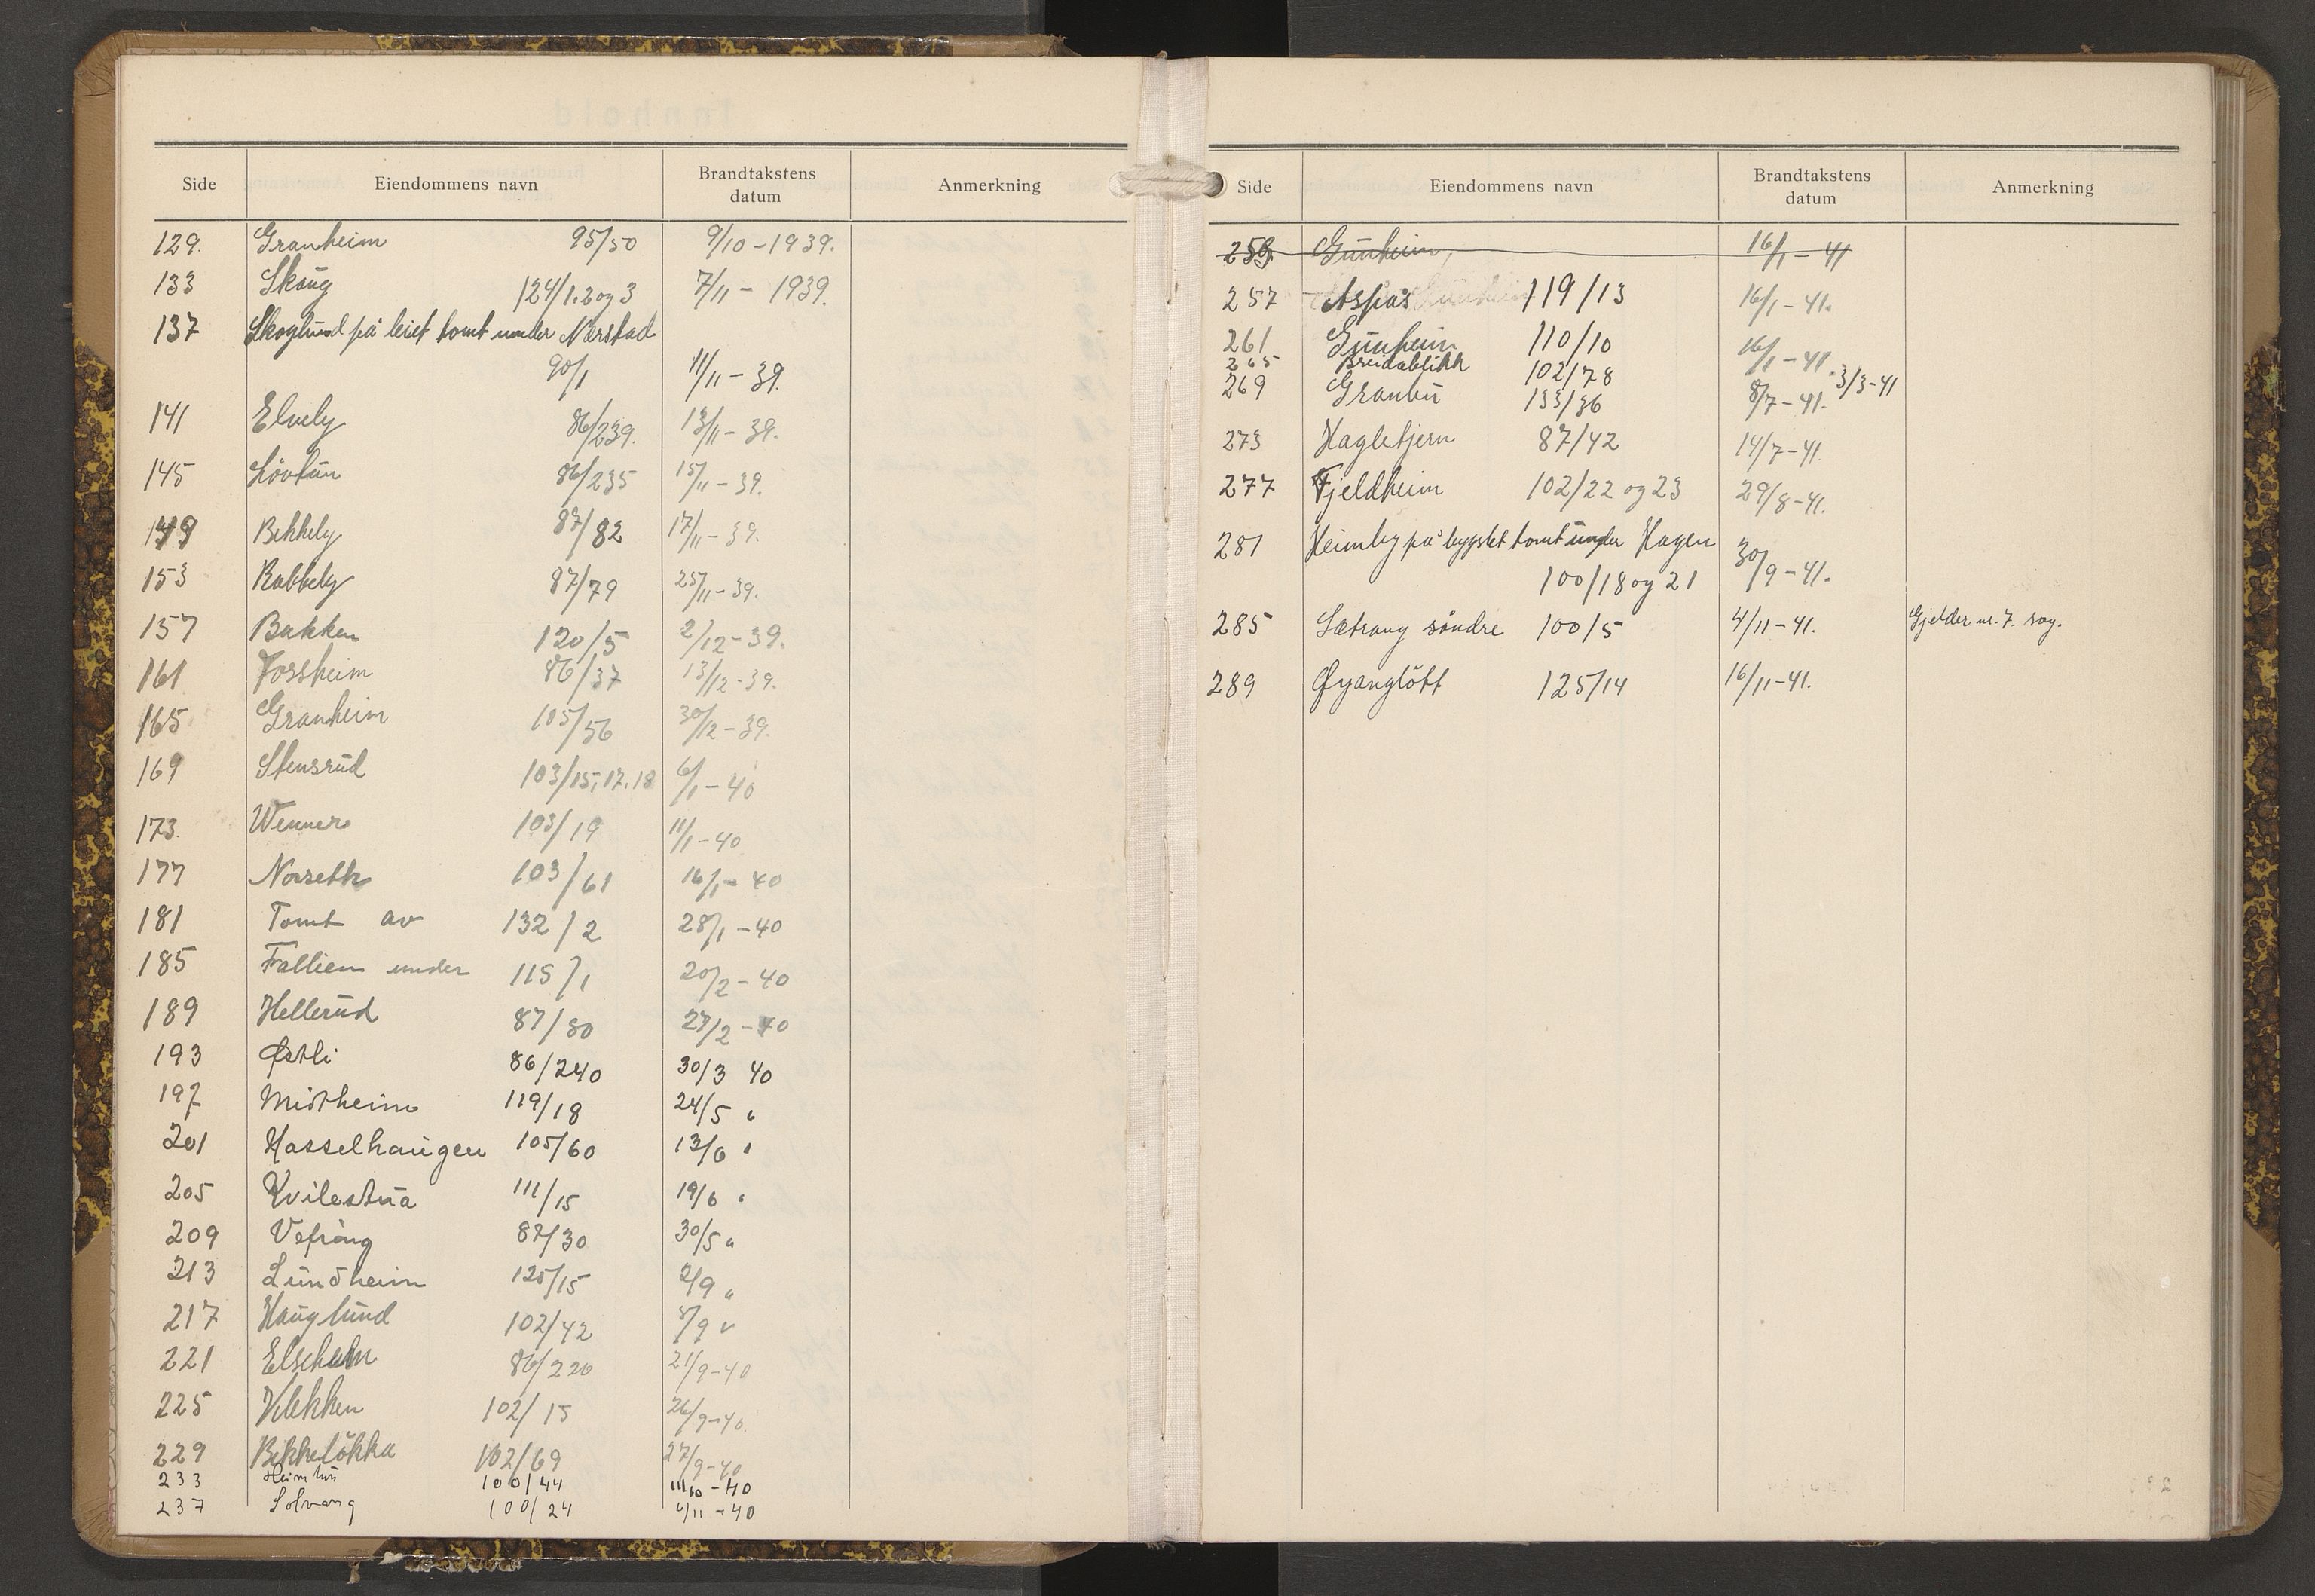 Side Eiendommens navn Brandtakstens datum Anmerkning
129. Granheim 95/50 9/10 - 1939.
133 Skaug 124/1.2 og 3 7/11 - 1939.
137 Skoglund på leiet tomt under Nærstad
90/1 11/11 - 39.
141 Elvely 86/239. 13/11 - 39.
145 Løvtun 86/235 15/11 - 39.
149 Bekkely 87/82 17/11 - 39.
153 Rabbely 87/79 25/11 - 39.
157 Bakken 120/5 2/12 - 39.
161 Fossheim 86/37 13/12 - 39.
165 Granheim 105/56 30/12 - 39.
169 Stensrud 103/15, 17. 18 6/1 - 40
173. Wenner 103/19 11/1 - 40
177 Norseth 103/61 16/1 - 40
181 Tomt av 132/2 28/1 - 40
185 Fallien under 115/1 20/2 - 40
189 Hellerud 87/80 27/2 - 40
193 Østli 86/240 30/3 40
197 Midtheim 119/18 24/5 "
201 Hasselhaugen 105/60 13/6 "
205 Kvilestua 111/15 19/6 "
209 Vefrang 87/30 30/5 "
213 Lundheim 125/15 2/9 "
217 Hauglund 102/42 8/9 "
221 86/220 21/9 - 40
225 Klekken 102/15 26/9 - 40.
229 Bekkeløkka 102/69 27/9 - 40
233 Heimtun 100/44 11/10 - 40
237 Solvang 100/24 4/11 - 40
Side Eiendommens navn Brandtakstens datum Anmerkning
Gunheim, 16/1 - 41
257 Aspås 119/13 16/1 - 41.
261 Gunheim 110/10 16/1 - 41.
265 Breidablikk 102/78 3/3 - 41
269 Granbu 133/36 8/7 - 41.
273 Hagletjern 87/42 14/7 - 41.
277 Fjeldheim 102/22 og 23 29/8 - 41.
281 Heimly på bygslet tomt under Hagen
100/18 og 21 30/9 - 41.
285 Sætrang søndre 100/5 4/11 - 41. Gjelder nr. 7. sag.
289 Øyangløtt 125/14 16/11 - 41.